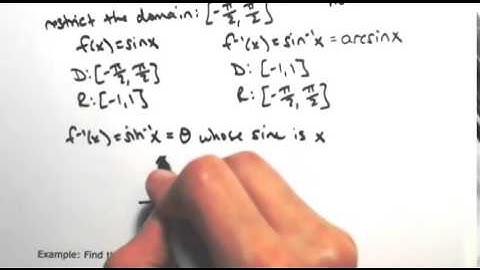 restrict the domain: [-π/2, π/2]
f(x)=sinx f⁻¹(x)=sin⁻¹x=arcsinx
D:[-π/2, π/2] D:[-1,1]
R:[-1,1] R:[-π/2, π/2]
f⁻¹(x)=sin⁻¹x=θ whose sine is x
Example: Find